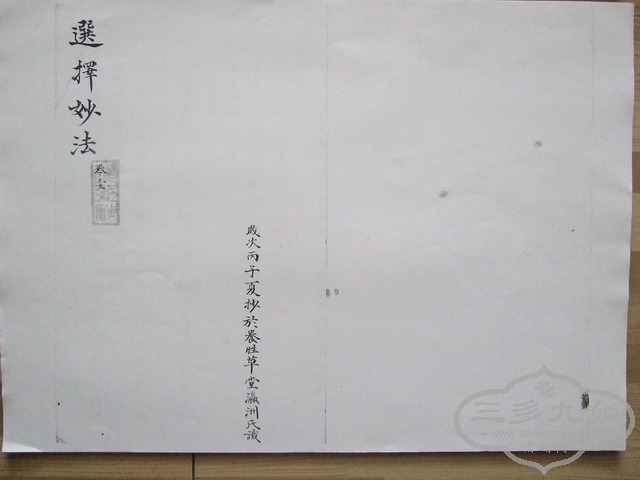 選擇妙法
卷壹
歲次丙子夏抄於養性草堂瀛洲氏識
三多九如